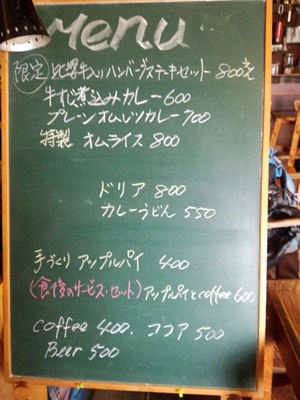 Menu
限定 比婆牛入りハンバーグステーキセット 800えん
牛すじ煮込みカレー 600
プレーンオムレツカレー 700
特製 オムライス 800
ドリア 800
カレーうどん 550
手づくり アップルパイ 400
(食後のサービス・セット) アップルパイとcoffee 600
coffee 400. ココア 500
Beer 500